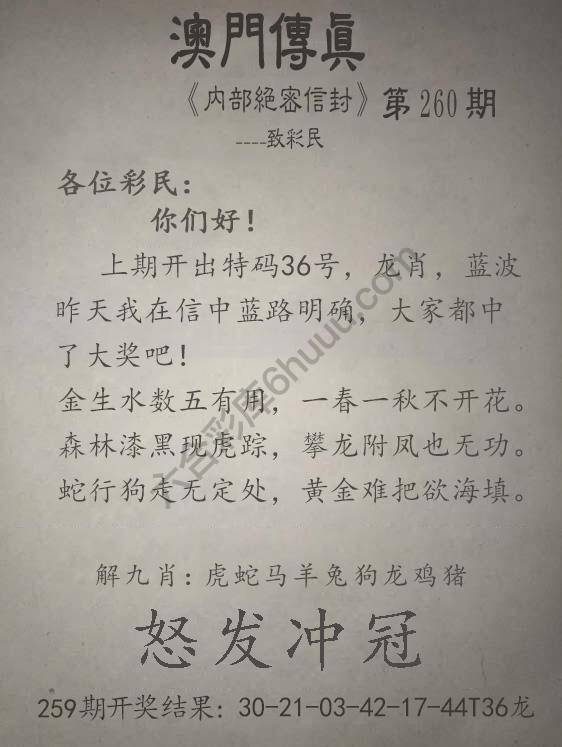 澳門傳眞
《内部絕密信封》第260期
----致彩民
各位彩民：
你们好！
上期开出特码36号，龙肖，蓝波
昨天我在信中蓝路明确，大家都中
了大奖吧！
金生水数五有用，一春一秋不开花。
森林漆黑现虎踪，攀龙附凤也无功。
蛇行狗走无定处，黄金难把欲海填。
六合彩库6huuu.com
解九肖：虎蛇马羊兔狗龙鸡猪
怒发冲冠
259期开奖结果：30-21-03-42-17-44T36龙